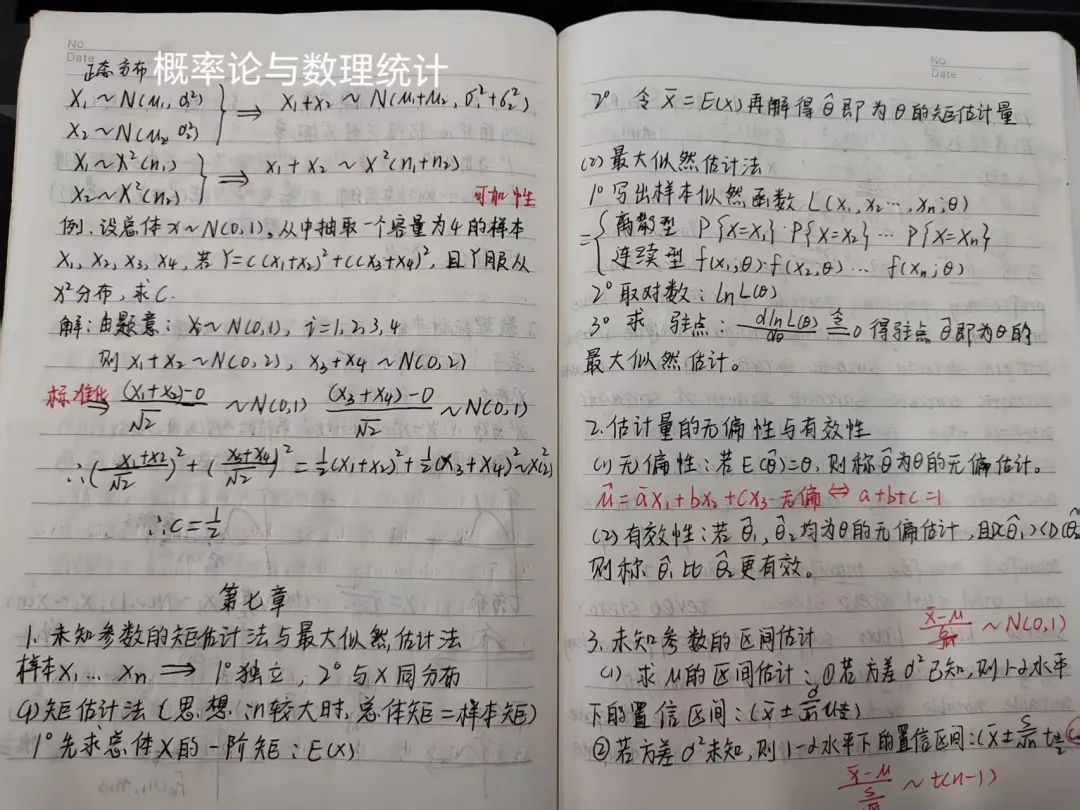 No.
Date
概率论与数理统计
正态分布
X₁~N(μ₁, σ₁²)
X₂~N(μ₂, σ₂²)
⇒ X₁+X₂ ~ N(μ₁+μ₂, σ₁²+σ₂²)
X₁~X²(n₁)
X₂~X²(n₂)
⇒ X₁+X₂ ~ X²(n₁+n₂)
可加性
例.设总体X~N(0,1),从中抽取一个容量为4的样本
X₁, X₂, X₃, X₄,若Y=C(X₁+X₂)²+C(X₃+X₄)²,且Y服从
X²分布,求C.
解:由题意:X~N(0,1), i=1,2,3,4
则X₁+X₂~N(0,2), X₃+X₄~N(0,2)
标准化 ⇒ (X₁+X₂)-0/√2 ~N(0,1) (X₃+X₄)-0/√2 ~N(0,1)
∴(X₁+X₂/√2)²+(X₃+X₄/√2)²=½(X₁+X₂)²+½(X₃+X₄)²~X²(2)
∴C=½
第七章
1.未知参数的矩估计法与最大似然估计法
样本X₁… Xn ⇒ 1°独立, 2°与X同分布
(1)矩估计法(思想:n较大时,总体矩=样本矩)
1°先求总体X的一阶矩:E(X)
No.
Date
2° 令X̄=E(X)再解得θ̂即为θ的矩估计量
(2)最大似然估计法
1°写出样本似然函数L(X₁,X₂…,Xn;θ)
={离散型 P{X=X₁}·P{X=X₂}… P{X=Xn}
连续型 f(X₁;θ)·f(X₂;θ)… f(Xn;θ)
2°取对数:lnL(θ)
3°求 驻点:dlnL(θ)/dθ ≙ 0 得驻点θ̂即为θ的
最大似然估计。
2.估计量的无偏性与有效性
(1)无偏性:若E(θ̂)=θ,则称θ̂为θ的无偏估计。
μ̂=aX₁+bX₂+CX₃无偏⇔a+b+c=1
(2)有效性:若θ̂₁,θ̂₂均为θ的无偏估计,且D(θ̂₁)<D(θ̂₂
则称θ̂₁比θ̂₂更有效。
3.未知参数的区间估计
(1)求μ的区间估计:①若方差σ²已知,则1-α水平
下的置信区间:(X̄±σ/√n uα/2)
②若方差σ²未知,则1-α水平下的置信区间:(X̄±S/√n tα/2
X̄-μ/S/√n ~t(n-1)